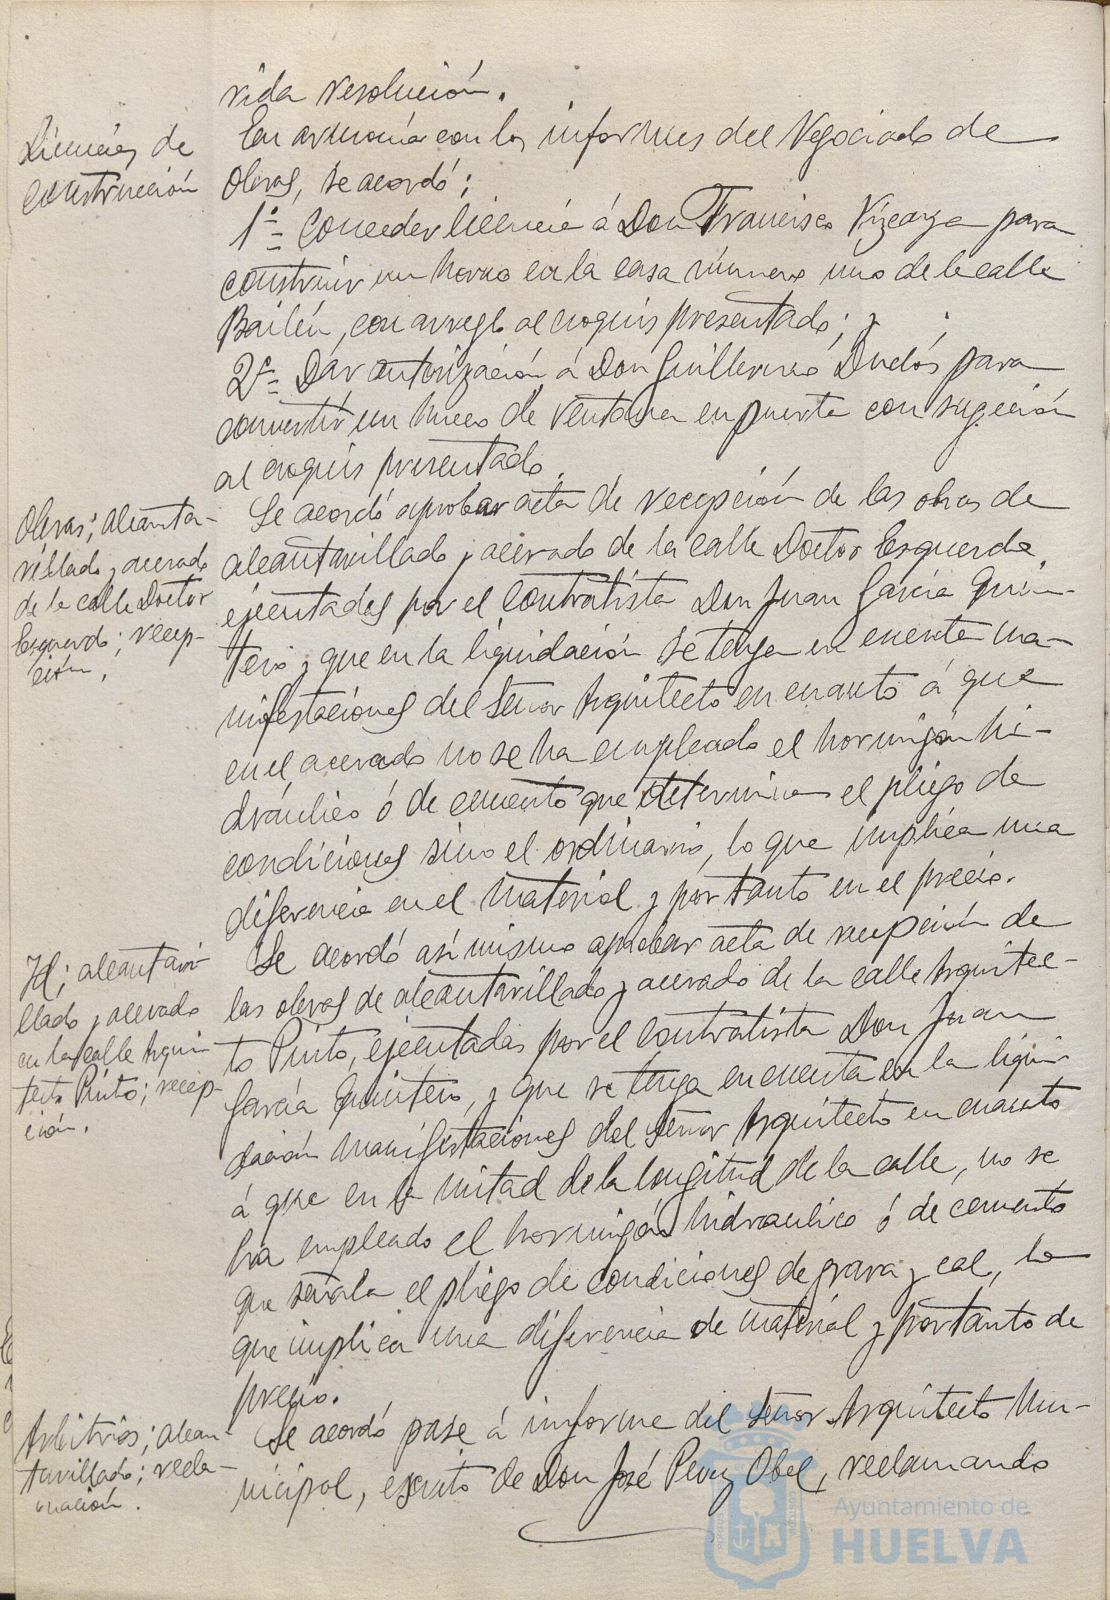 vida resolución.
Licencias de
construcción
En armonía con los informes del Negociado de
Obras, se acordó:
1º= Conceder licencia á Don Francisco Vizcaya para
construir un horno en la casa número uno de la calle
Bailén, con arreglo al croquis presentado; y
2º= Dar autorización á Don Guillermo Duclós para
convertir un hueco de ventana en puerta con sugeción
al croquis presentado.
Obras; alcanta-
rillado y acerado
de la calle Doctor
Esquerdo; recep-
ción.
Se acordó aprobar acta de recepción de las obras de
alcantarillado y acerado de la calle Doctor Esquerdo,
ejecutadas por el contratista Don Juan García Quin-
tero y que en la liquidación se tenga en cuenta ma-
nifestaciones del Señor Arquitecto en cuanto á que
en el acerado no se ha empleado el hormigón hi-
dráulico ó de cemento que determina el pliego de
condiciones sino el ordinario, lo que implica una
diferencia en el material y por tanto en el precio.
Id; alcantari-
llado y acerado
en la calle Arqui-
tecto Pinto; recep-
ción.
Se acordó asimismo aprobar acta de recepción de
las obras de alcantarillado y acerado de la calle Arquitec-
to Pinto, ejecutadas por el contratista Don Juan
García Quintero, y que se tenga en cuenta en la liqui-
dación manifestaciones del Señor Arquitecto en cuanto
á que en la mitad de la longitud de la calle, no se
ha empleado el hormigón hidraulico ó de cemento
que señala el pliego de condiciones de grava y cal, lo
que implica una diferencia de material y por tanto de
precio.
Arbitrios; alcan-
tarillado; recla-
mación.
Se acordó pase á informe del Señor Arquitecto Mu-
nicipal, escrito de Don José Perez Obel, reclamando
Ayuntamiento de
HUELVA